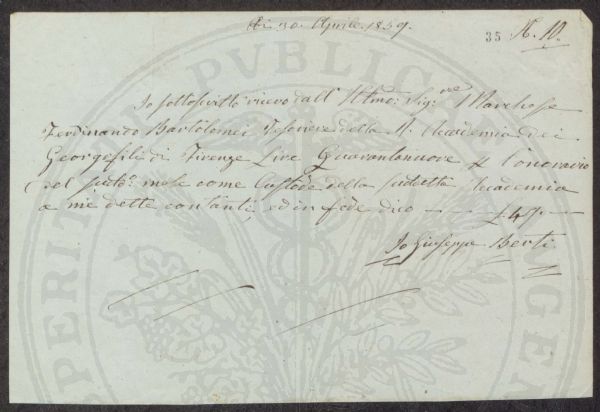 Di 30. Aprile 1859.
35 N. 10.
Io sottoscritto ricevo dall' Illmo: Sig:ore Marchese
Ferdinando Bartolomei Tesoriere della R. Accademia dei
Georgofili di Firenze Lire Quarantanuove p l'onorario
del sudto: mese come Custode della sudetta Accademia
a me dette contanti ed in fede dico — £ 49. —
Io Giuseppe Berti
PERITATI PUBLICAE AUGENDAE